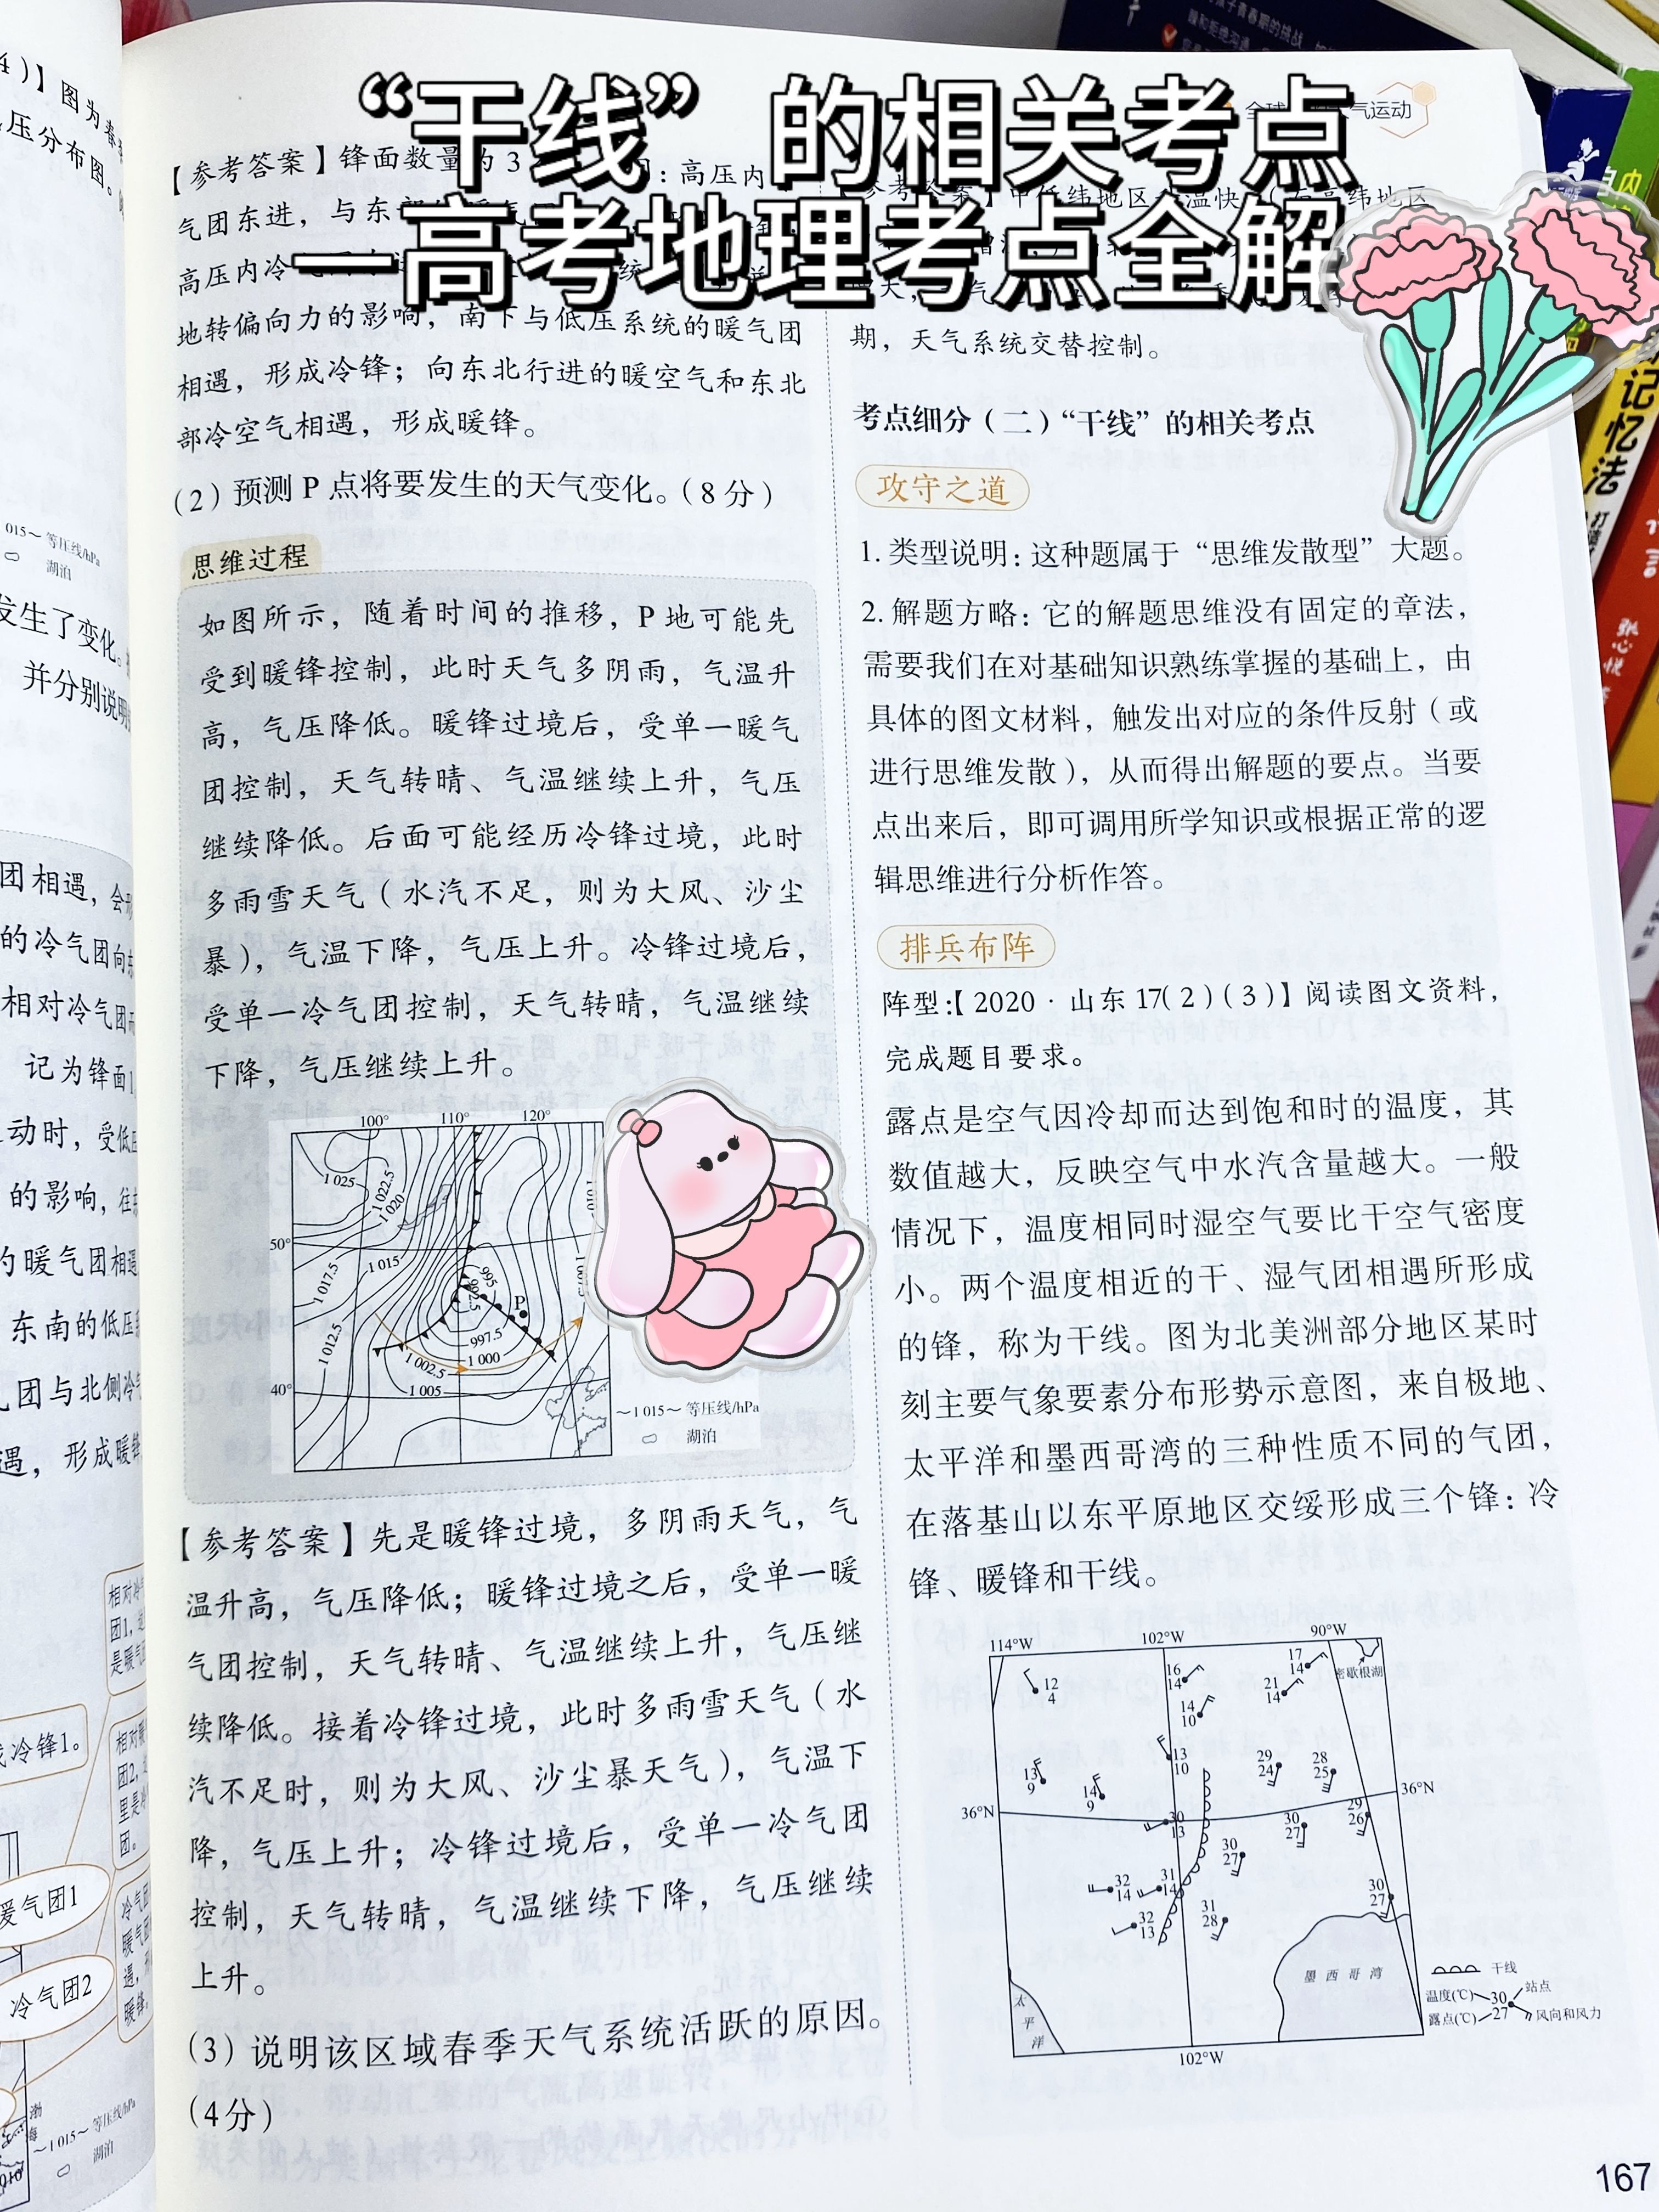 “干线”的相关考点
—高考地理考点全解
4)】图为春
压分布图。
015～等压线/hPa
湖泊
发生了变化。
并分别说明
团相遇，会
的冷气团向
相对冷气团
记为锋面1
动时，受低
的影响，往
的暖气团相遇
东南的低压
团与北侧冷
遇，形成暖锋
相对冷
团1，
是暖气团
冷锋1。
相对
团2，
里是冷
团。
暖气团1
冷气团
暖气团
遇，
暖锋
冷气团2
渤海
～1 015～等压线/hPa
湖泊
【参考答案】锋面数量为3
：高压内
气团东进，与东部
高压内冷
地转偏向力的影响，南下与低压系统的暖气团
相遇，形成冷锋；向东北行进的暖空气和东北
部冷空气相遇，形成暖锋。
（2）预测P点将要发生的天气变化。（8分）
思维过程
如图所示，随着时间的推移，P地可能先
受到暖锋控制，此时天气多阴雨，气温升
高，气压降低。暖锋过境后，受单一暖气
团控制，天气转晴、气温继续上升，气压
继续降低。后面可能经历冷锋过境，此时
多雨雪天气（水汽不足，则为大风、沙尘
暴），气温下降，气压上升。冷锋过境后，
受单一冷气团控制，天气转晴，气温继续
下降，气压继续上升。
100° 110° 120°
1 025
1 022.5
1 020
50°
1 015
1 017.5
995
992.5
P
1 012.5
997.5
1 000
1 002.5
40°
1 005
～1 015～等压线/hPa
湖泊
【参考答案】先是暖锋过境，多阴雨天气，气
温升高，气压降低；暖锋过境之后，受单一暖
气团控制，天气转晴、气温继续上升，气压继
续降低。接着冷锋过境，此时多雨雪天气（水
汽不足时，则为大风、沙尘暴天气），气温下
降，气压上升；冷锋过境后，受单一冷气团
控制，天气转晴，气温继续下降，气压继续
上升。
（3）说明该区域春季天气系统活跃的原因。
（4分）
全球 气运动
参考答案】中低纬地区 温快
期，天气系统交替控制。
考点细分（二）“干线”的相关考点
攻守之道
1. 类型说明：这种题属于“思维发散型”大题。
2. 解题方略：它的解题思维没有固定的章法，
需要我们在对基础知识熟练掌握的基础上，由
具体的图文材料，触发出对应的条件反射（或
进行思维发散），从而得出解题的要点。当要
点出来后，即可调用所学知识或根据正常的逻
辑思维进行分析作答。
排兵布阵
阵型:【2020·山东17(2)(3)】阅读图文资料，
完成题目要求。
露点是空气因冷却而达到饱和时的温度，其
数值越大，反映空气中水汽含量越大。一般
情况下，温度相同时湿空气要比干空气密度
小。两个温度相近的干、湿气团相遇所形成
的锋，称为干线。图为北美洲部分地区某时
刻主要气象要素分布形势示意图，来自极地、
太平洋和墨西哥湾的三种性质不同的气团，
在落基山以东平原地区交绥形成三个锋：冷
锋、暖锋和干线。
114°W 102°W 90°W
密歇根湖
12
4
16
14
17
14
21
14
14
10
13
10
13
9
14
9
29
24
28
25
36°N
36°N
30
13
30
27
29
26
30
27
32
14
31
14
32
13
31
28
30
27
墨西哥湾
太平洋
102°W
干线
温度(℃) 30 站点
露点(℃) 27 风向和风力
167
记忆法
张心悦